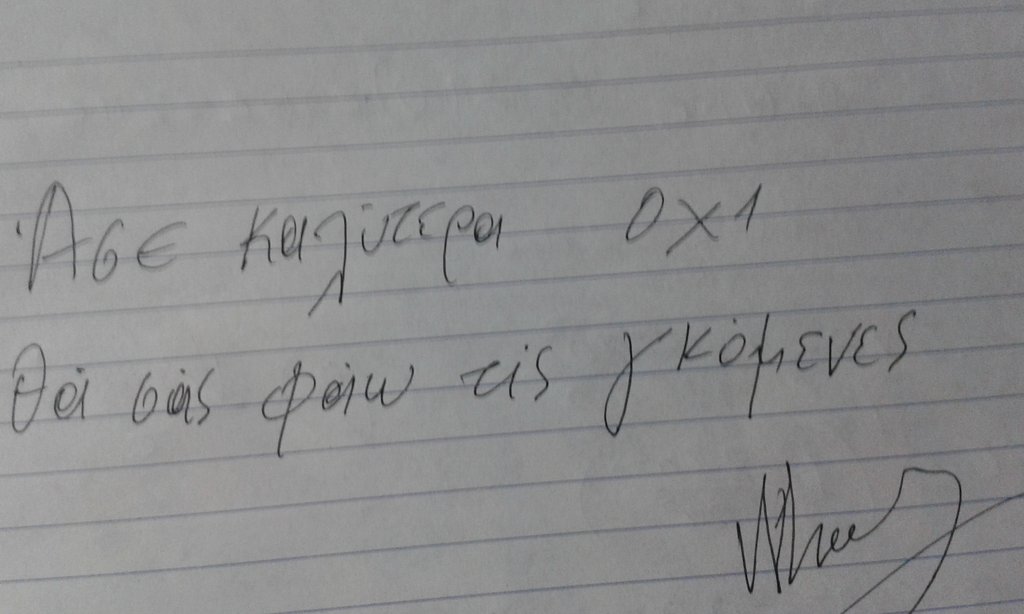 Άσε καλύτερα οχι
θά σάς φάω τίς γκόμενες